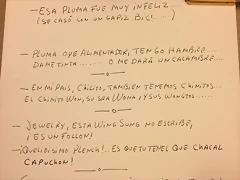 — ESA PLUMA FUE MUY INFELIZ...
(SE CASÓ CON UN LAPIZ BIC!...)
— PLUMA OYE ALIMENTADOR, TENGO HAMBRE....
DAME TINTA....... O ME DARÁ UN CALAMBRE...
— EN MI PAIS, CHILITO, TAMBIEN TENEMOS CHINITOS...
EL CHINITO WIN, SU SRA WONA, ¡Y SUS WONITOS....
— JEWELRY, ESTA WING SUNG NO ESCRIBE,
¡ ES UN FOLLON!
¡QUELIDISIMO PLENCH!.. ES QUE TU TENEL QUE CHACAL
CAPUCHON!